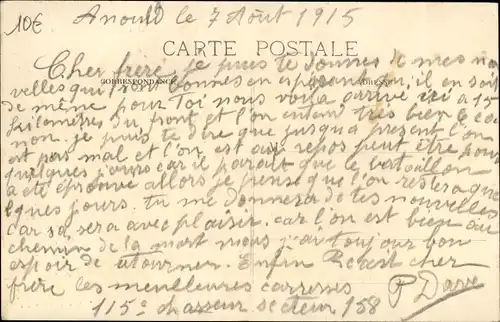 10€
Anould le 7 Août 1915
CARTE POSTALE
CORRESPONDANCE
ADRESSE
Cher frère, je puis te donner de mes nou
velles qui sont bonnes en espérant qu'il en soit
de même pour Toi nous voila arrivé ici a 15
kilomètres du front et l'on entend très bien le ca
non. je puis te dire que jusqua présent l'on
est pas mal et l'on est au repos peut être pour
quelques jours car il parait que le bataillon
a été éprouvé allors je pense que l'on restera que
lques jours. tu me donnera de tes nouvelles
car sa sera avec plaisir. car l'on est bien au
chemin de la mort mais j'ai toujour bon
espoir de retourner. Enfin Reçoit cher
frère les meilleures carresses
P Darve
115e chasseur secteur 158